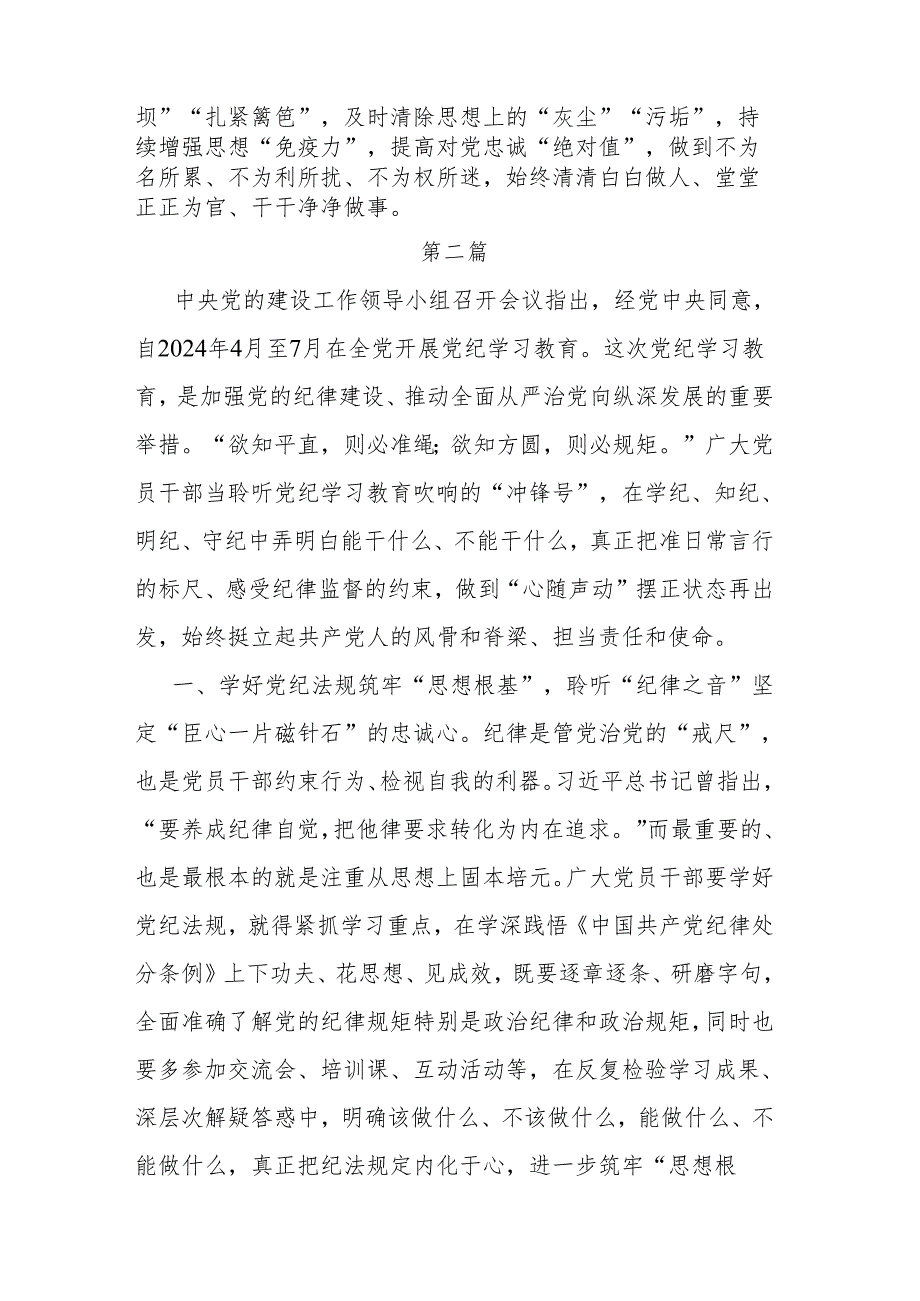 坝”“扎紧篱笆”，及时清除思想上的“灰尘”“污垢”，持
续增强思想“免疫力”，提高对党忠诚“绝对值”，做到不为
名所累、不为利所扰、不为权所迷，始终清清白白做人、堂堂
正正为官、干干净净做事。
第二篇
中央党的建设工作领导小组召开会议指出，经党中央同意，
自2024年4月至7月在全党开展党纪学习教育。这次党纪学习教
育，是加强党的纪律建设、推动全面从严治党向纵深发展的重要
举措。“欲知平直，则必准绳；欲知方圆，则必规矩。”广大党
员干部当聆听党纪学习教育吹响的“冲锋号”，在学纪、知纪、
明纪、守纪中弄明白能干什么、不能干什么，真正把准日常言行
的标尺、感受纪律监督的约束，做到“心随声动”摆正状态再出
发，始终挺立起共产党人的风骨和脊梁、担当责任和使命。
一、学好党纪法规筑牢“思想根基”，聆听“纪律之音”坚
定“臣心一片磁针石”的忠诚心。纪律是管党治党的“戒尺”，
也是党员干部约束行为、检视自我的利器。习近平总书记曾指出，
“要养成纪律自觉，把他律要求转化为内在追求。”而最重要的、
也是最根本的就是注重从思想上固本培元。广大党员干部要学好
党纪法规，就得紧抓学习重点，在学深践悟《中国共产党纪律处
分条例》上下功夫、花思想、见成效，既要逐章逐条、研磨字句，
全面准确了解党的纪律规矩特别是政治纪律和政治规矩，同时也
要多参加交流会、培训课、互动活动等，在反复检验学习成果、
深层次解疑答惑中，明确该做什么、不该做什么，能做什么、不
能做什么，真正把纪法规定内化于心，进一步筑牢“思想根